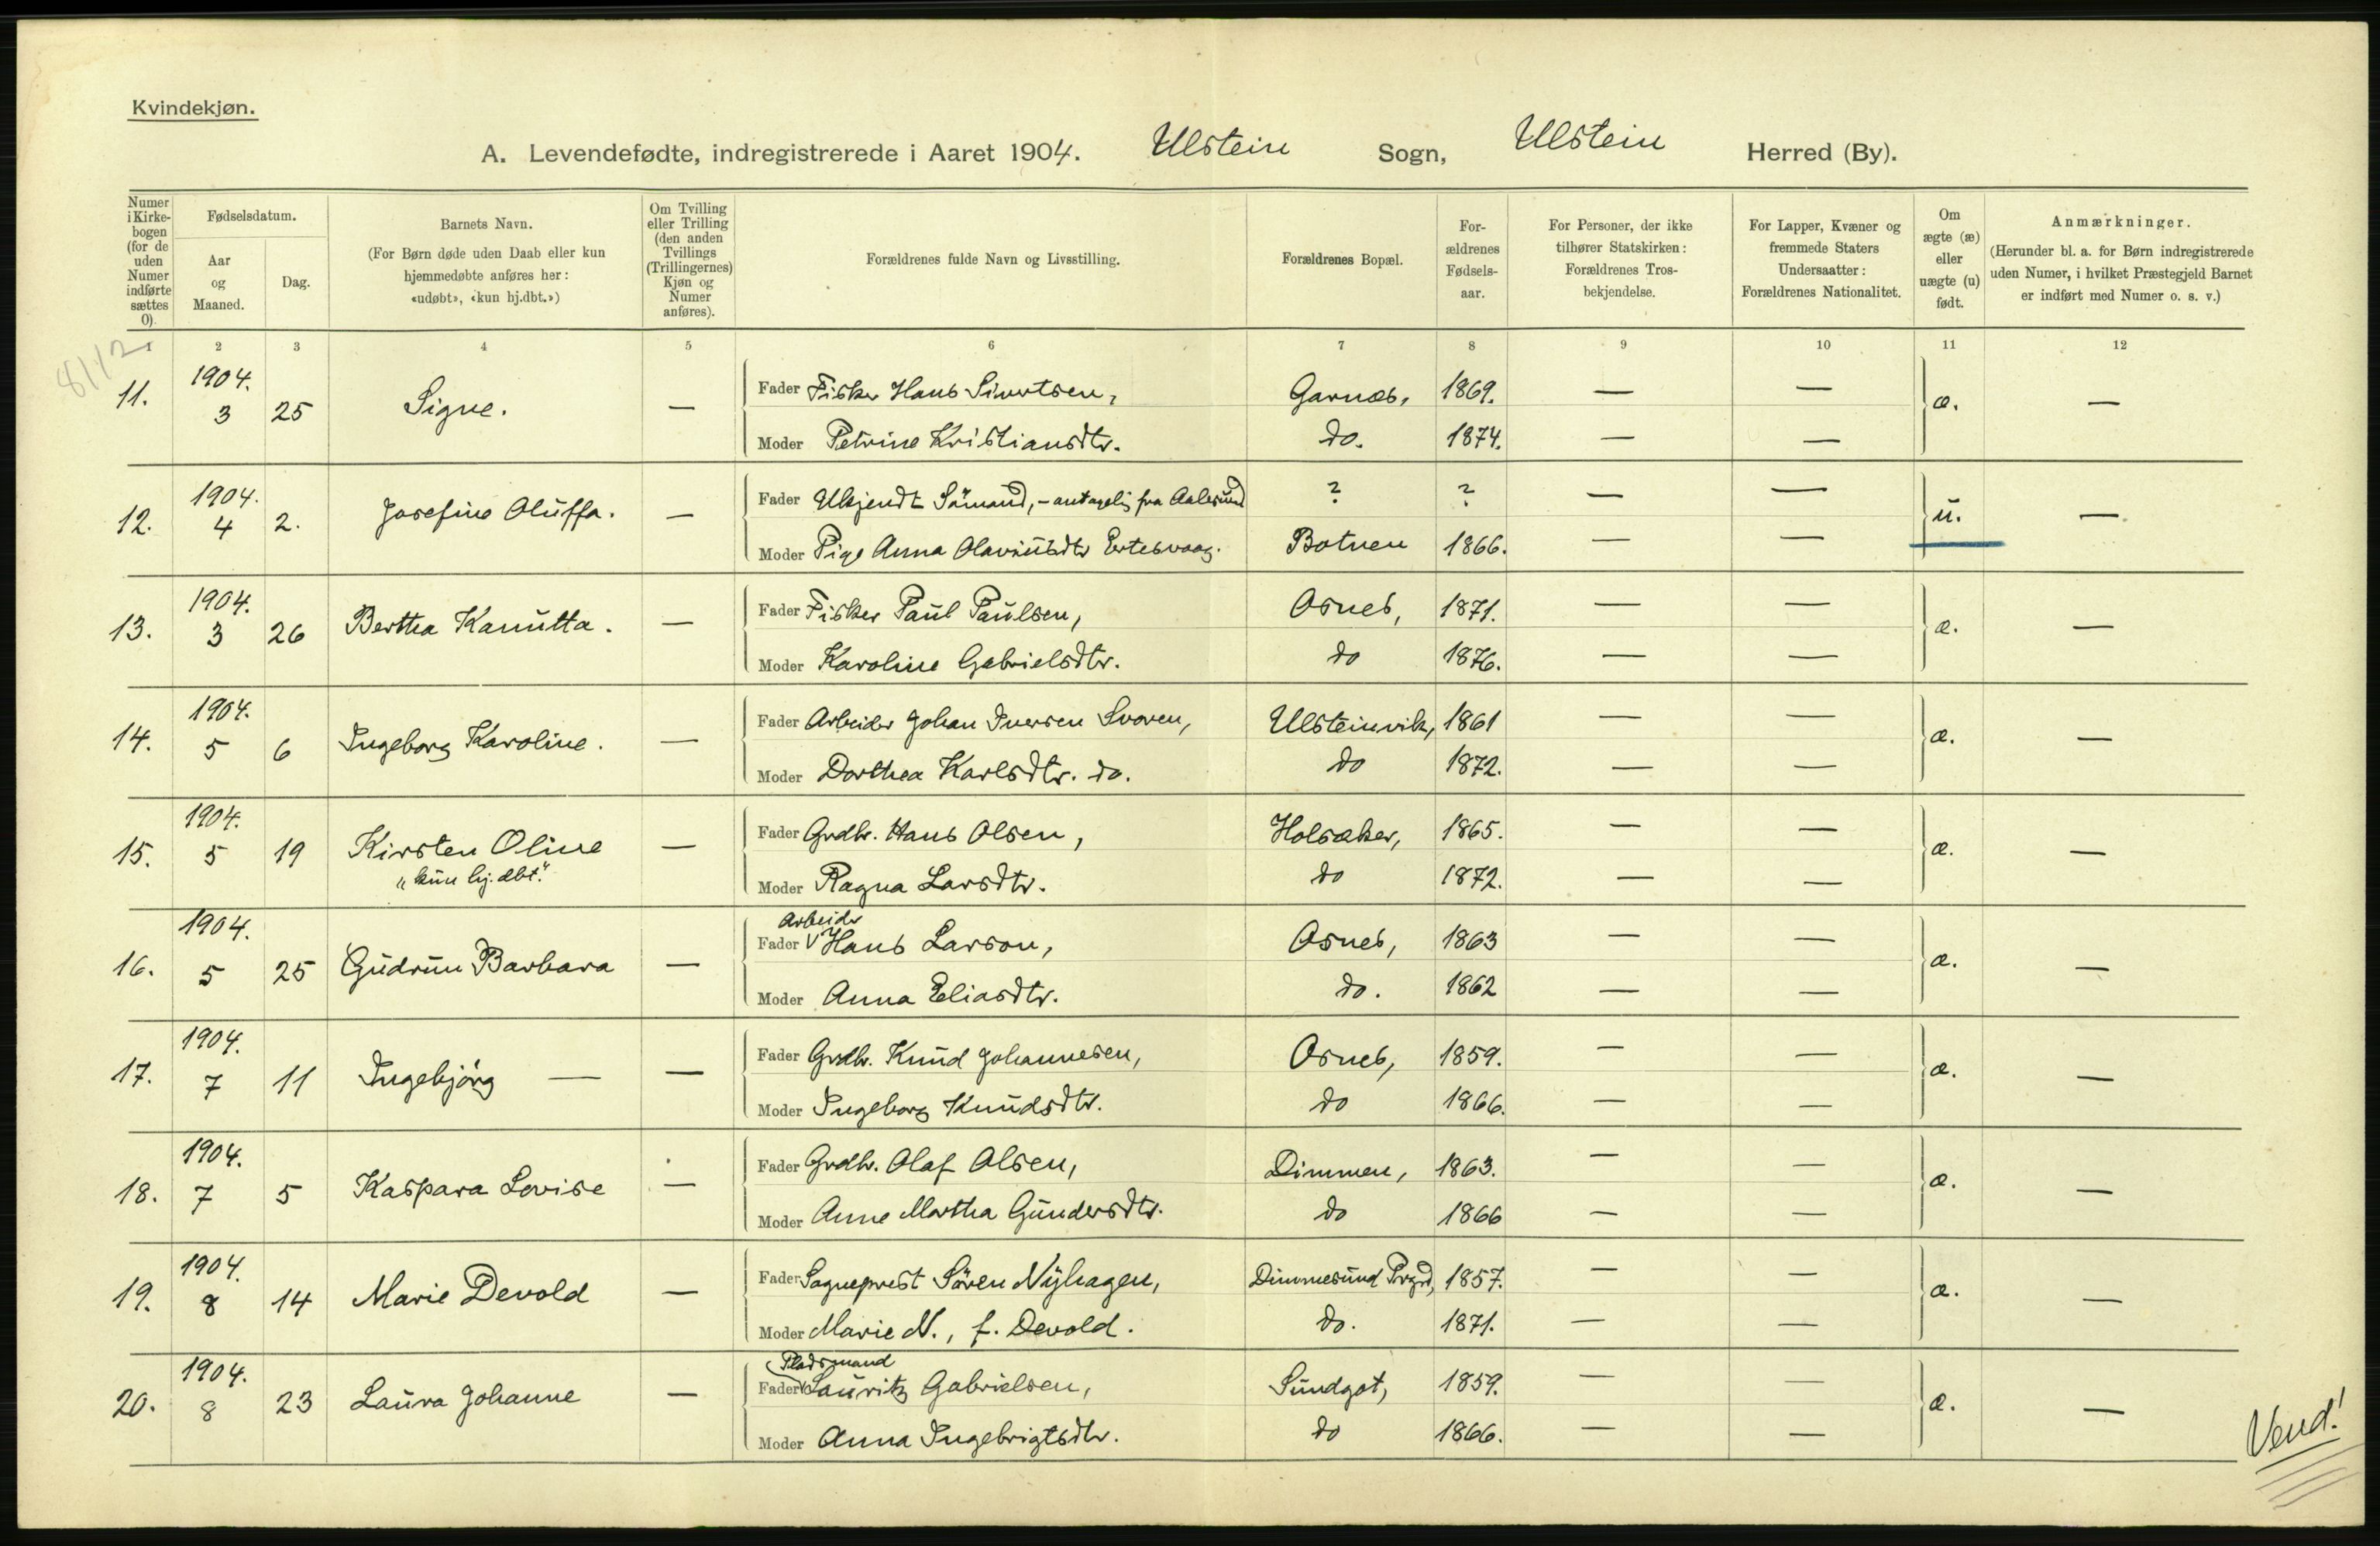 Kvindekjøn.
A. Levendefødte, indregistrerede i Aaret 1904. Ulstein Sogn, Ulstein Herred (By).
Numer i Kirkebogen (for de uden Numer indførte sættes 0).
Fødselsdatum.
Aar og Maaned.
Dag.
Barnets Navn.
(For Børn døde uden Daab eller kun hjemmedøbte anføres her: «udøbt», «kun hj.dbt.»)
Om Tvilling eller Trilling (den anden Tvillings (Trillingernes) Kjøn og Numer anføres).
Forældrenes fulde Navn og Livsstilling.
Forældrenes Bopæl.
For-ældrenes Fødsels-aar.
For Personer, der ikke tilhører Statskirken: Forældrenes Tros-bekjendelse.
For Lapper, Kvæner og fremmede Staters Undersaatter: Forældrenes Nationalitet.
Om ægte (æ) eller uægte (u) født.
Anmærkninger.
(Herunder bl. a. for Børn indregistrerede uden Numer, i hvilket Præstegjeld Barnet er indført med Numer o. s. v.)
1 2 3 4 5 6 7 8 9 10 11 12
8112
11. 1904. 3 25 Signe. — Fader Fisker Hans Sivertsen, Garnæs, 1869. — — æ. —
Moder Petrine Kristiansdtr. do. 1874. — —
12. 1904. 4 2. Josefine Oluffa. — Fader Ukjendt Sömand, - antagelig fra Aalesund ? ? — — u. —
Moder Pige Anna Olaviusdtr Eertesvaag. Botnen 1866. — —
13. 1904. 3 26 Bertha Kanutta. — Fader Fisker Paul Paulsen, Osnes, 1871. — — æ. —
Moder Karoline Gabrielsdtr. do 1876. — —
14. 1904. 5 6 Ingeborg Karoline. — Fader Arbeider Johan Iversen Svoren, Ulsteinvik, 1861 — — æ. —
Moder Dorthea Karlsdtr. do. do 1872. — —
15. 1904. 5 19 Kirsten Oline — Fader Grdbr. Hans Olsen, Holsæker, 1865. — — æ. —
"kun hj. dbt." Moder Ragna Larsdtr. do 1872. — —
16. 1904. 5 25 Gudrun Barbara — Fader Arbeider Hans Larson, Osnes, 1863 — — æ. —
Moder Anna Eliasdtr. do. 1862 — —
17. 1904. 7 11 Ingebjörg — — Fader Grdbr. Knud Johannesen, Osnes, 1859. — — æ. —
Moder Ingeborg Knudsdtr. do 1866. — —
18. 1904. 7 5 Kaspara Lovise — Fader Grdbr. Olaf Olsen, Dimmen, 1863. — — æ. —
Moder Anne Martha Gundersdtr. do 1866 — —
19. 1904. 8 14 Marie Devold — Fader Sogneprest Sören Nyhagen, Dimmesund Prgd, 1857. — — æ. —
Moder Marie N., f. Devold. do. 1871. — —
20. 1904. 8 23 Laura Johanne — Fader Pladsmand Lauritz Gabrielsen, Sundgot, 1859. — — æ. —
Moder Anna Ingebrigtsdtr. do 1866. — —
Vend!